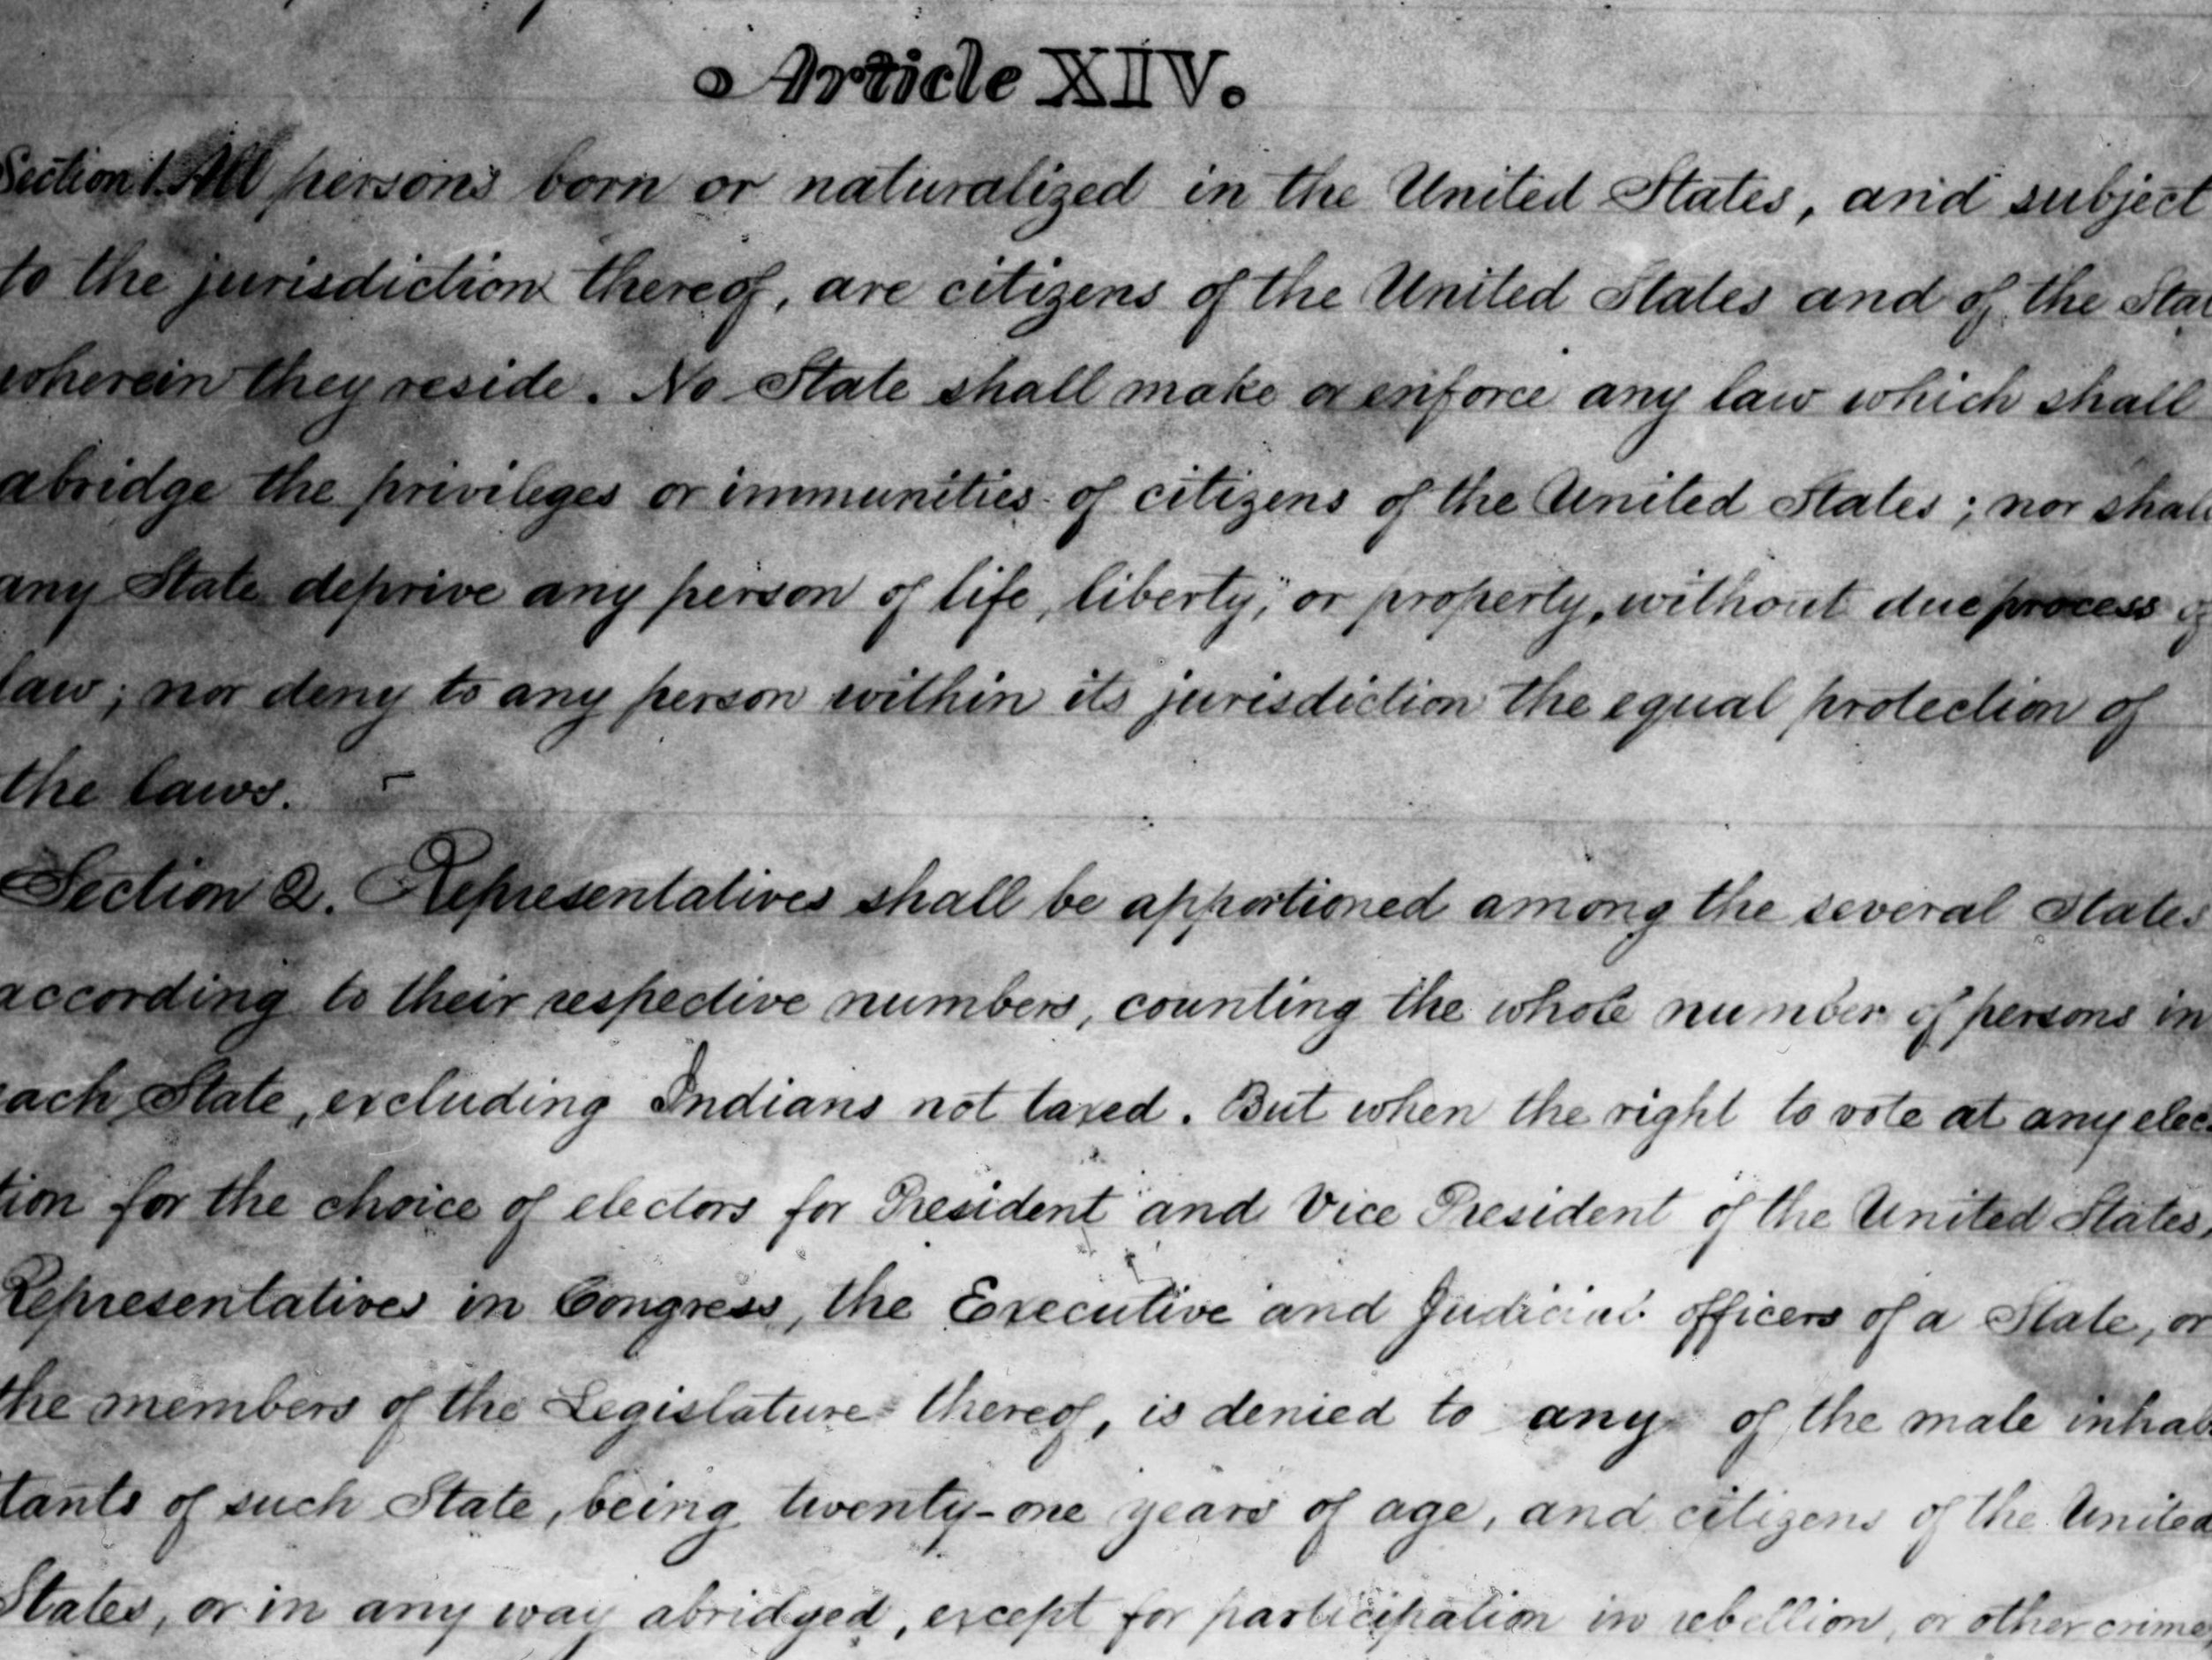 Article XIV.
Section 1. All persons born or naturalized in the United States, and subject
to the jurisdiction thereof, are citizens of the United States and of the Stat
wherein they reside. No State shall make or enforce any law which shall
abridge the privileges or immunities of citizens of the United States; nor shall
any State deprive any person of life, liberty, or property, without due process of
law; nor deny to any person within its jurisdiction the equal protection of
the laws.
Section 2. Representatives shall be apportioned among the several States
according to their respective numbers, counting the whole number of persons in
each State, excluding Indians not taxed. But when the right to vote at any elec-
tion for the choice of electors for President and Vice President of the United States,
Representatives in Congress, the Executive and Judicial officers of a State, or
the members of the Legislature thereof, is denied to any of the male inhab
tants of such State, being twenty-one years of age, and citizens of the United
States, or in any way abridged, except for participation in rebellion, or other crime,